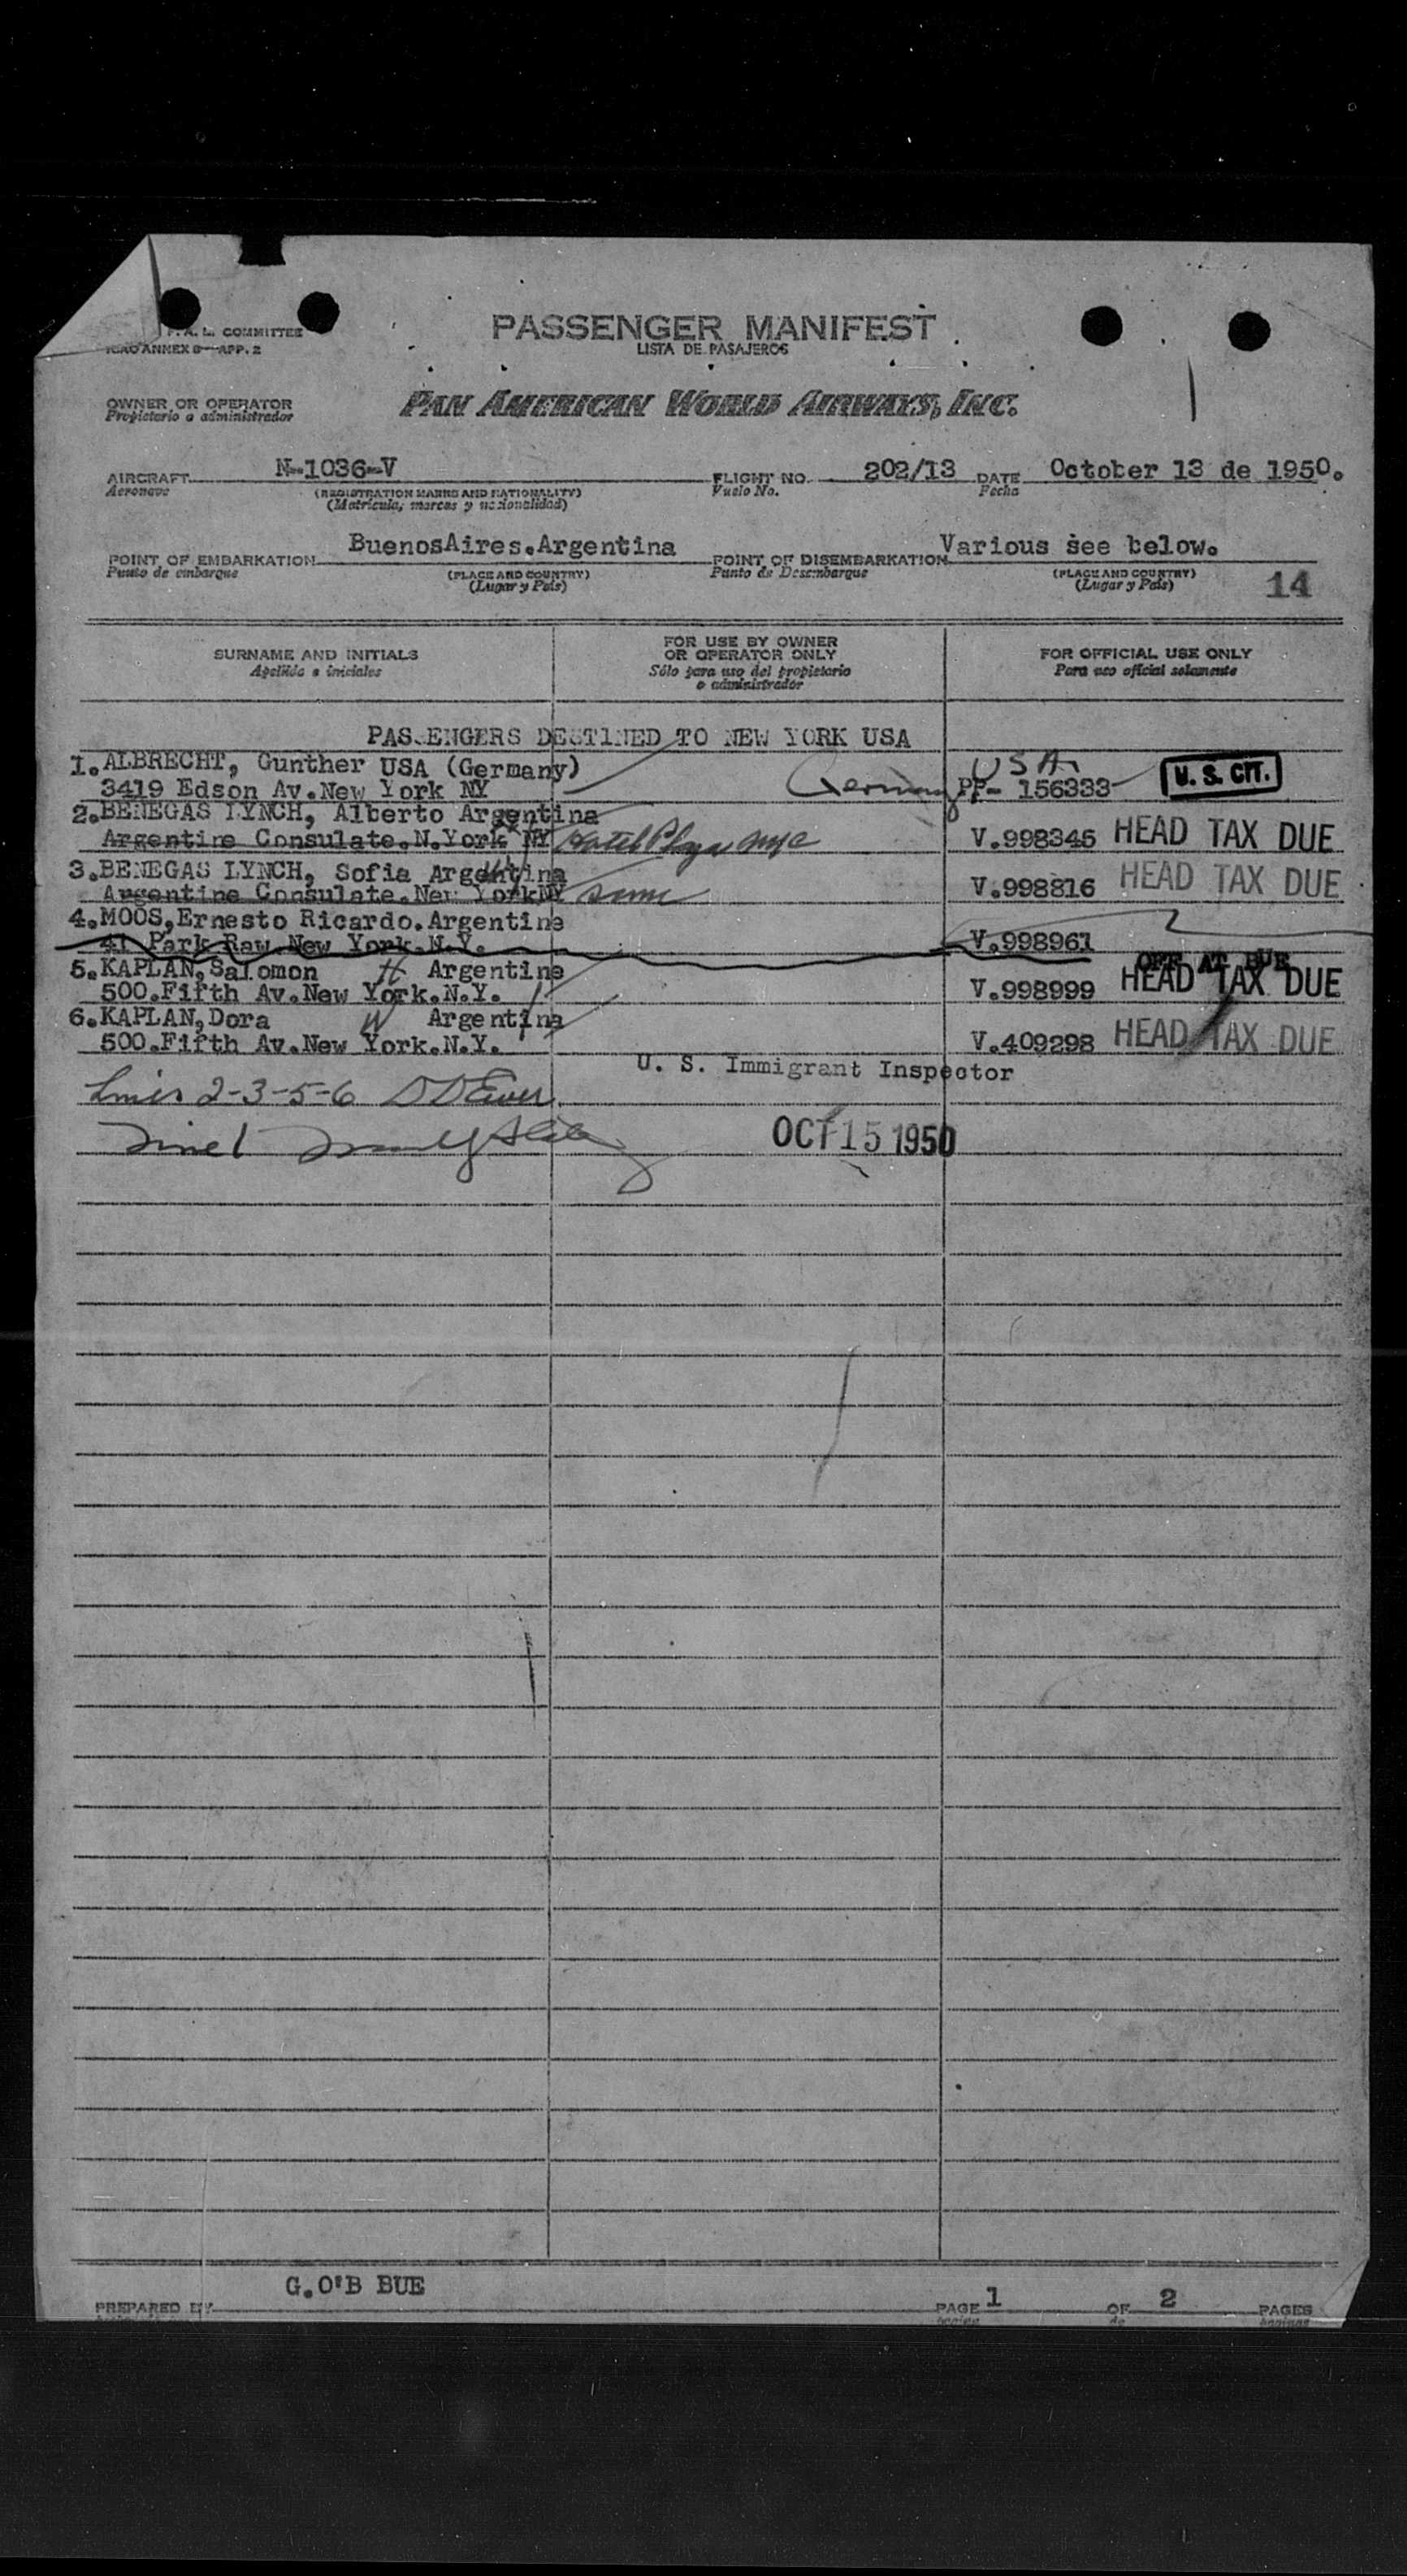 F. A. L. COMMITTEE
ICAO ANNEX 9—APP. 2
PASSENGER MANIFEST
LISTA DE PASAJEROS
OWNER OR OPERATOR
Propietario o administrador
PAN AMERICAN WORLD AIRWAYS, INC.
AIRCRAFT N-1036-V FLIGHT NO. 202/13 DATE October 13 de 1950.
Aeronave (REGISTRATION MARKS AND NATIONALITY) Vuelo No. Fecha
(Matrícula, marcas y nacionalidad)
POINT OF EMBARKATION BuenosAires.Argentina POINT OF DISEMBARKATION Various see below.
Punto de embarque (PLACE AND COUNTRY) Punto de Desembarque (PLACE AND COUNTRY)
(Lugar y País) (Lugar y País) 14
SURNAME AND INITIALS FOR USE BY OWNER OR OPERATOR ONLY FOR OFFICIAL USE ONLY
Apellido e iniciales Sólo para uso del propietario o administrador Para uso oficial solamente
PASSENGERS DESTINED TO NEW YORK USA
1.ALBRECHT, Gunther USA (Germany) USA
3419 Edson Av.New York NY Germany PP- 156333 U. S. CIT.
2.BENEGAS LYNCH, Alberto Argentina
Argentine Consulate.N.York NY Hotel Plaza NYC V.998345 HEAD TAX DUE
3.BENEGAS LYNCH, Sofia Argentina
Argentine Consulate.New YorkNY same V.998816 HEAD TAX DUE
4.MOOS,Ernesto Ricardo.Argentine
41 Park Raw New York.N.Y. V.998961
OFF AT BUE
5.KAPLAN,Salomon H Argentine
500.Fifth Av.New York.N.Y. V.998999 HEAD TAX DUE
6.KAPLAN,Dora W Argentina
500.Fifth Av.New York.N.Y. V.409298 HEAD TAX DUE
U. S. Immigrant Inspector
Lines 2-3-5-6
Line 1
OCT 15 1950
G.O'B BUE
PREPARED BY PAGE 1 OF 2 PAGES